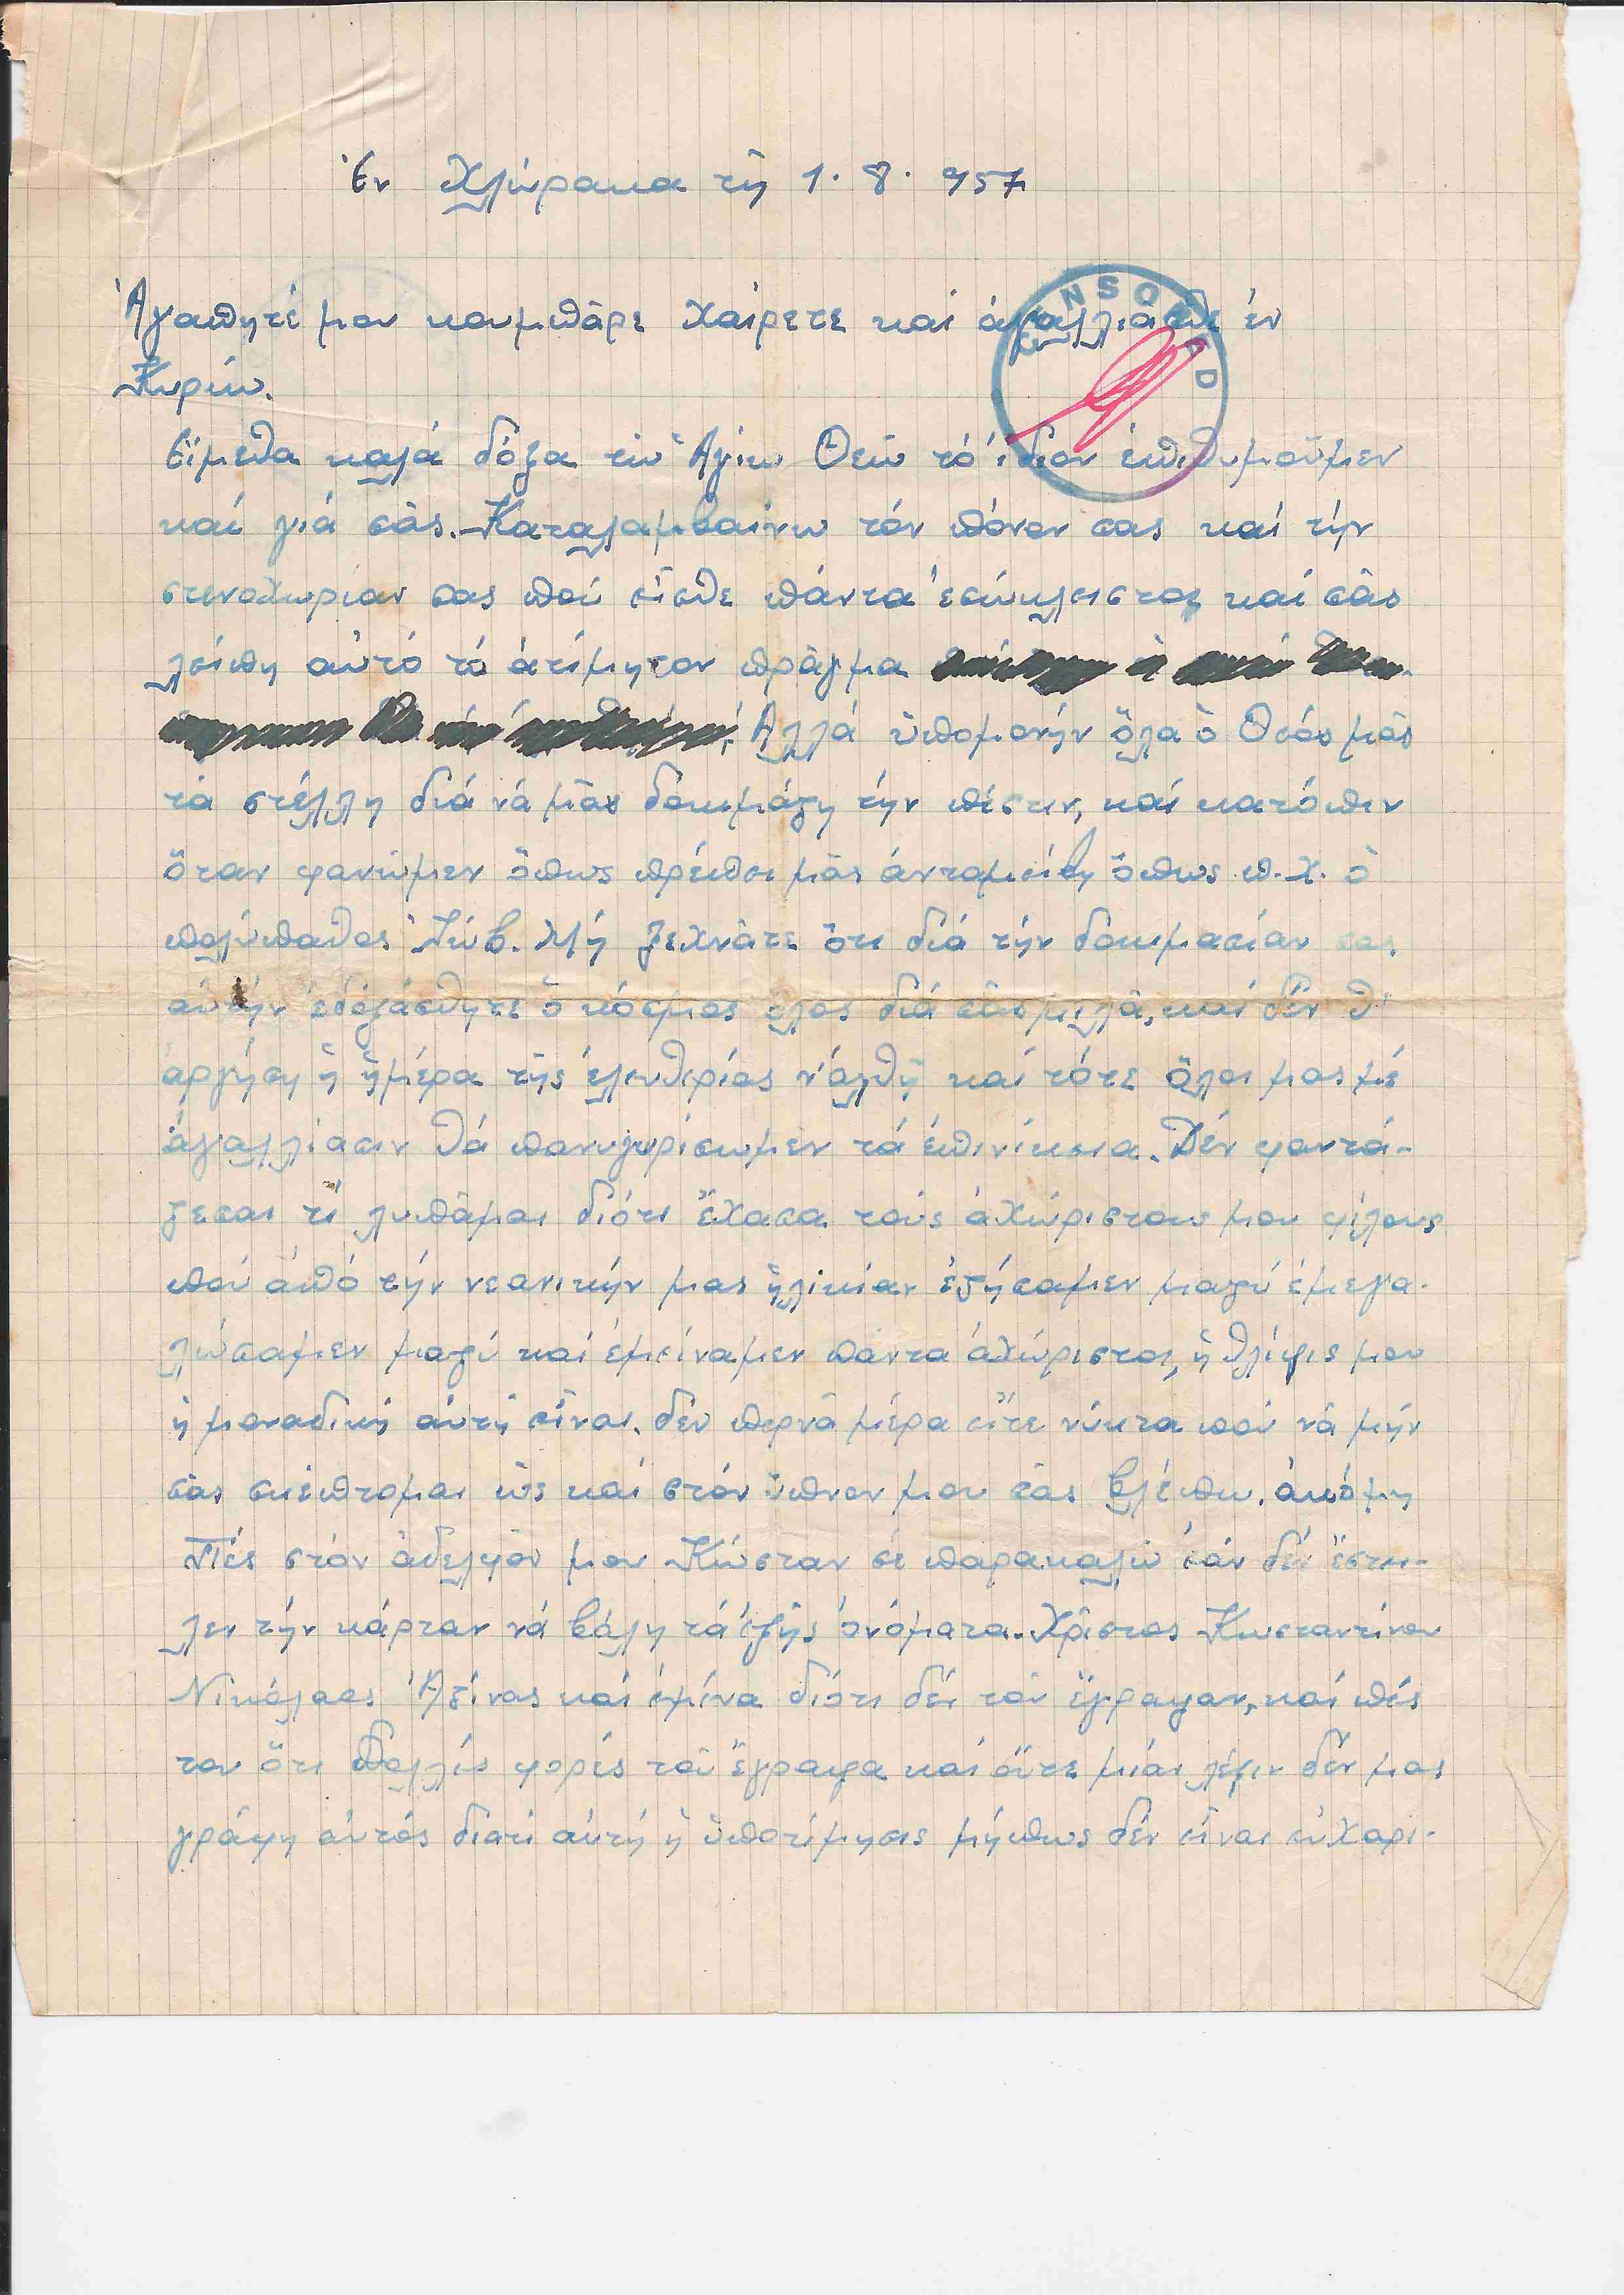 Ἐν Χλώρακα τῇ 1. 8. 957
CENSORED
Ἀγαπητέ μου κουμπάρε χαίρετε καί ἀγαλλιᾶσθε ἐν
Κυρίω.
Εἴμεθα καλά δόξα τῶ Ἁγίω Θεῶ τό ἴδιον ἐπιθυμοῦμεν
καί γιά σᾶς. Καταλαμβαίνω τόν πόνον σας καί τήν
στενοχωρίαν σας πού εἶσθε πάντα ἐσώκλειστος καί σᾶς
λείπη αὐτό τό ἀτίμητον πρᾶγμα
Ἀλλά ὑπομονήν ὅλα ὁ Θεός μᾶς
τά στέλλη διά νά μᾶς δοκιμάζη τήν πίστιν, καί κατόπιν
ὅταν φανῶμεν ὅπως πρέπει μᾶς ἀνταμείβη ὅπως π.χ. ὁ
πολύπαθος Ἰώβ. Μή ξεχνᾶτε ὅτι διά τήν δοκιμασίαν σας
αὐτήν ἐδοξάσθητε ὁ κόσμος ὅλος διά σᾶς μιλᾶ, καί δέν θ'
ἀργήση ἡ ἡμέρα τῆς ἐλευθερίας ν' ἀλθῆ καί τότε ὅλοι μας μέ
ἀγαλλίασιν θά πανυγυρίσωμεν τά ἐπινίκεια. Δέν φαντά-
ζεσαι τί λυπᾶμαι διότι ἔχασα τούς ἀχώριστους μου φίλους
πού ἀπό τήν νεανικήν μας ἡλικίαν ἐζήσαμεν μαζύ ἐμεγα-
λώσαμεν μαζύ καί ἐμείναμεν πάντα ἀχώριστοι, ἡ θλίψις μου
ἡ μοναδική αὐτή εἶναι. δέν περνᾶ μέρα εἴτε νύκτα πού νά μήν
σᾶς σκέπτομαι ὡς καί στόν ὕπνον μου σᾶς βλέπω. ἀκόμη
Πές στόν ἀδελφόν μου Κώσταν σέ παρακαλῶ ἐάν δέν ἔστει-
λεν τήν κάρταν νά βάλη τά ἑξῆς ὀνόματα. Χρῖστος Κωσταντίνου
Νικόλαος Ἀζίνας καί ἐμένα διότι δέν τόν ἔγραψαν, καί πές
του ὅτι πολλές φορές τοῦ ἔγραψα καί οὔτε μίαν λέξιν δέν μας
γράφη αὐτός διατί αὐτή ἡ ὑποτίμησις μήπως δέν εἶναι εὐχαρι-